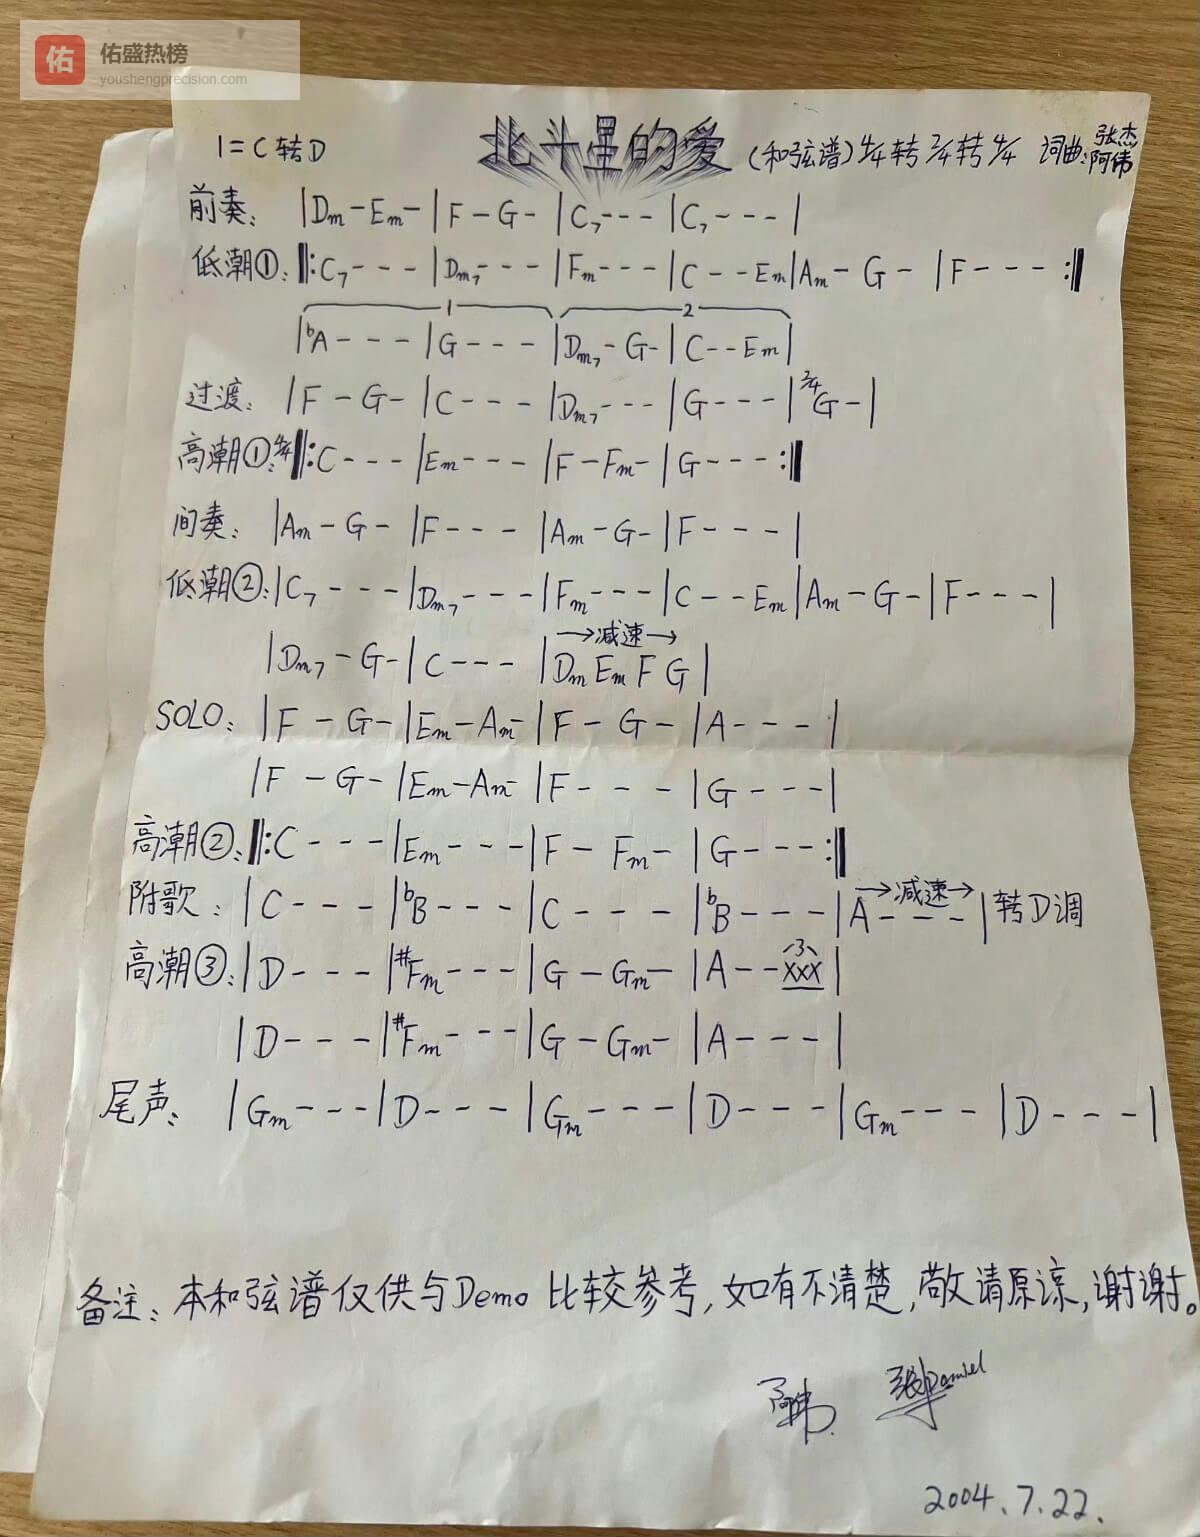 佑 佑盛热榜
youshengprecision.com
1=C转D 北斗星的爱 (和弦谱) 4/4转2/4转4/4 词曲:张杰 阿伟
前奏: |Dm-Em-|F-G-|C7---|C7---|
低潮①: ‖:C7---|Dm7---|Fm---|C--Em|Am-G-|F---:‖
1 2
|bA---|G---|Dm7-G-|C--Em|
过渡: |F-G-|C---|Dm7---|G---|2/4 G-|
高潮①: 4/4‖:C---|Em---|F-Fm-|G---:‖
间奏: |Am-G-|F---|Am-G-|F---|
低潮②: |C7---|Dm7---|Fm---|C--Em|Am-G-|F---|
→减速→
|Dm7-G-|C---|Dm Em F G|
SOLO: |F-G-|Em-Am-|F-G-|A---|
|F-G-|Em-Am-|F---|G---|
高潮②: ‖:C---|Em---|F-Fm-|G---:‖
附歌: |C---|bB---|C---|bB---|A---|转D调
→减速→
高潮③: |D---|#Fm---|G-Gm-|A--XXX|
3
|D---|#Fm---|G-Gm-|A---|
尾声: |Gm---|D---|Gm---|D---|Gm---|D---|
备注: 本和弦谱仅供与Demo比较参考,如有不清楚,敬请原谅,谢谢。
阿伟 Daniel
2004.7.22.